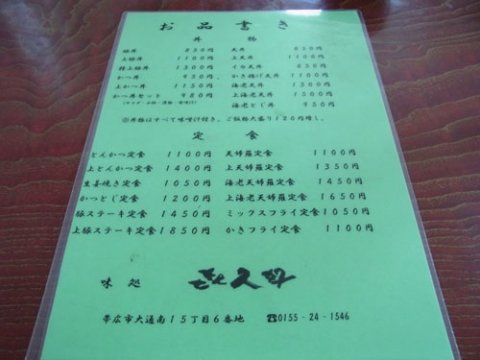 お品書き
丼物
豚丼 850円 天丼 850円
上豚丼 1100円 上天丼 1100円
特上豚丼 1300円 イカ天丼 850円
かつ丼 950円 かき揚げ天丼 1100円
上かつ丼 1150円 海老天丼 1300円
かつ丼セット 980円 上海老天丼 1500円
海老とじ丼 950円
◎丼物はすべて味噌汁付き、ご飯類大盛り120円増し
定食
とんかつ定食 1100円 天婦羅定食 1100円
上とんかつ定食 1400円 上天婦羅定食 1350円
生姜焼き定食 1050円 海老天婦羅定食 1450円
かつとじ定食 1200円 上海老天婦羅定食 1650円
豚ステーキ定食 1450円 ミックスフライ定食 1050円
上豚ステーキ定食 1850円 かきフライ定食 1100円
味処
帯広市大通南15丁目6番地 ☎0155-24-1546